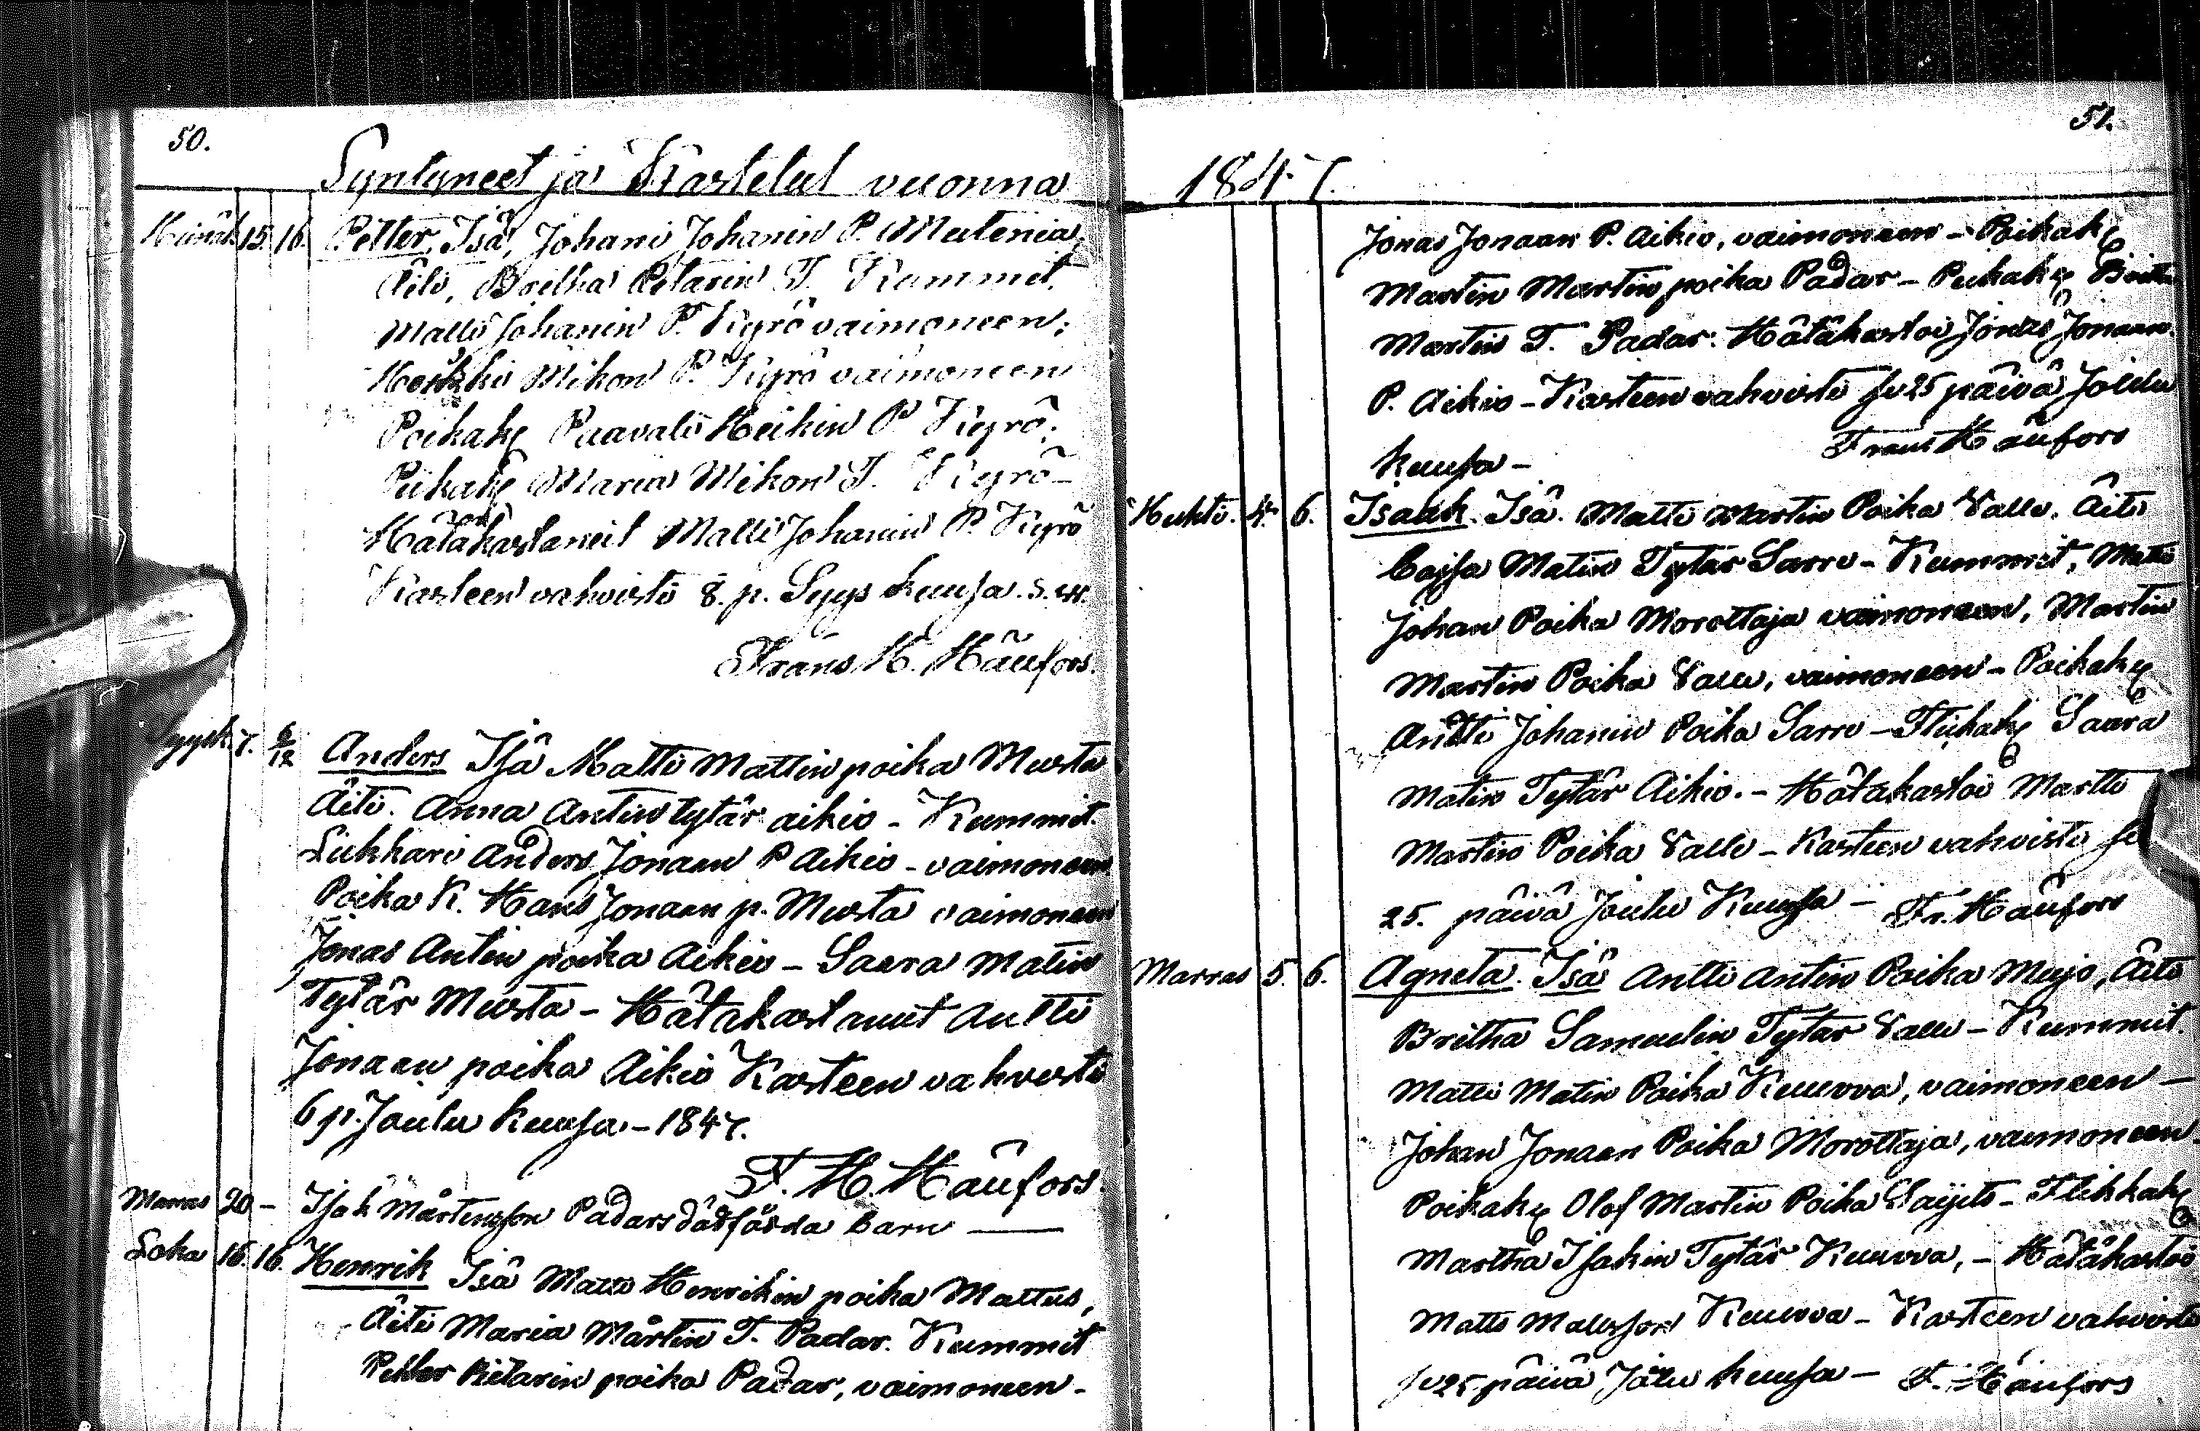 50.
Syntyneet ja Kastetut vuonna
Heinäk. 15. 16. Petter, Isä, Johani Johanin P. Mutenia,
Äiti, Britha Petarin T. Kummit,
Matti Johanin P. Kyrö vaimoneen;
Heikki Mikon P. Kyrö vaimoneen
Poikak Paavali Heikin P Kyrö.
Piikak Maria Mikon T. Kyrö –
Hätäkastaneit Matti Johanin P. Kyrö
Kasteen vahvisti 8. p. Syys kuusa. s. v.
Frans H. Häufors.
Syysk. 7. 6/12 Anders Isä Matti Mattin poika Musta
Äiti. Anna Antin tytär aikio – Kummit.
Lukkari Anders Jonaan P Aikio – vaimoneen
Poika K. Hans Jonaan p. Musta vaimoneen
Jonas Antin poika Aikio – Saara Matin
Tytär Musta – Hätäkastanut Antti
Jonaan poika Aikio Kasteen vahvisti
6 p. Joulu kuusa – 1847.
F. H. Häufors.
Marras 20 – Isak Mårtensson Padars dödfödda Barn
Loka 16. 16. Henrik Isä Matti Henrikin poika Mattus,
Äiti Maria Mårtin T. Padar. Kummit
Petter Pietarin poika Padar, vaimoneen –
51.
1847.
Jonas Jonaan P. Aikio, vaimoneen – Poikak
Martin Martin poika Padar – Piikak Britha
Martin T. Padar. Hätäkastoi Jonas Jonaan
P. Aikio – Kasteen vahvisti se 25 päivä Joulu
kuusa – Frans H Häufors
Huhti. 4. 6. Isaak. Isä. Matti Martin Poika Valle. Äiti
Cajsa Matin Tytär Sarre – Kummit, Matti
Johan Poika Morottaja vaimoneen, Martin
Martin Poika Valle, vaimoneen – Poikak
Antti Johanin Poika Sarre – Flikak Saara
Matin Tytär Aikio. – Hätäkastoi Martti
Martin Poika Valle – Kasteen vahvisti se
25. päivä Joulu Kuusa – Fr. Häufors
Marras 5. 6. Agneta. Isä Antti Antin Poika Mujo, Äiti
Britha Samuelin Tytär Valle – Kummit
Matti Matin Poika Kuuvva, vaimoneen –
Johan Jonaan Poika Morottaja, vaimoneen
Poikak Olof Martin Poika Saijets – Flikkak
Martha Isakin Tytär Kuuvva, – Hätäkastoi
Matts Matsson Kuuvva – Kasteen vahvisti
se 25 päivä Jolu kuusa – F. Häufors